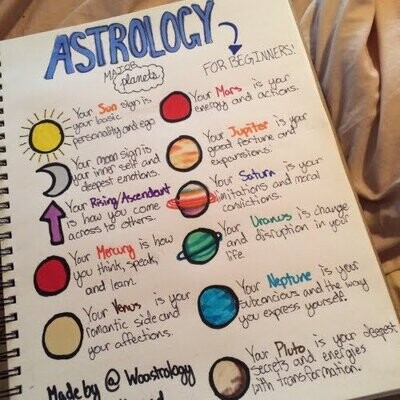 ASTROLOGY
MAJOR
planets
FOR BEGINNERS!
Your Sun sign is
your basic
personality and ego
Your moon sign is
your inner self and
deepest emotions.
Your Rising/Ascendent
is how you come
across to others.
Your Mercury is how
you think, speak,
and learn.
Your Venus is your
romantic side and
your affections.
Made by @ Woostrology
Your Mars is your
energy and actions.
Your Jupiter is your
good fortune and
expansions.
Your Saturn is your
limitations and moral
convictions.
Your Uranus is change
and disruption in your
life
Your Neptune is your
subconcious and the way
you express yourself.
Your Pluto is your deepest
secrets and energies
with transformation.